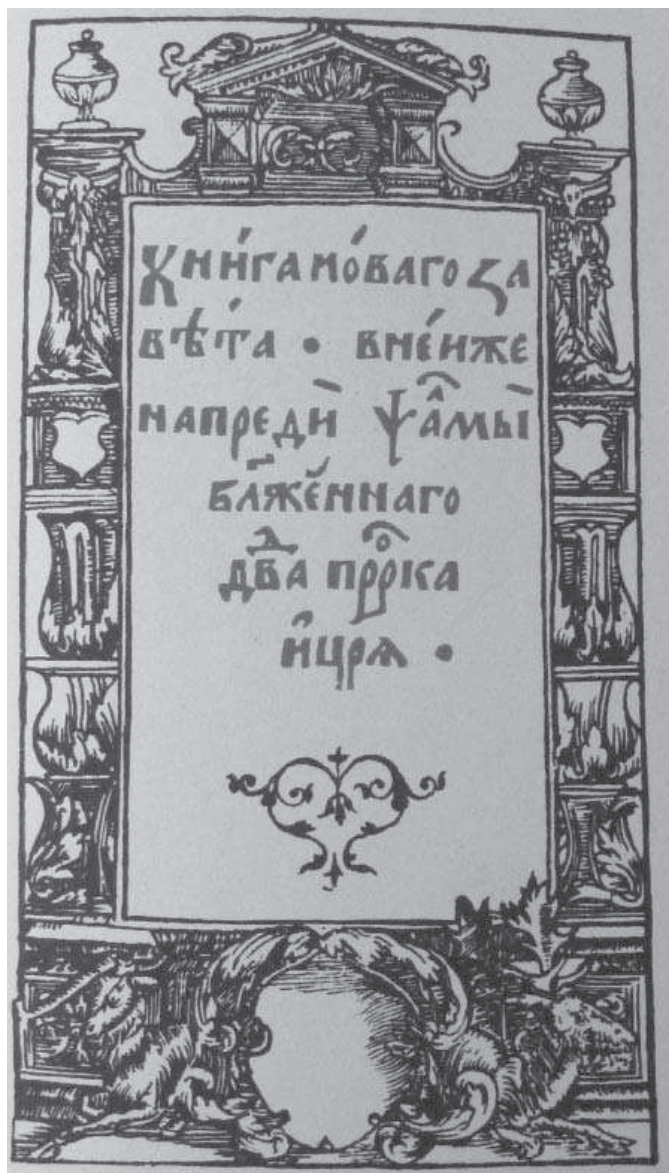 Кни́га но́ваго за
вѣ́та • вне́йже
напредѝ ѱа̑лⷨмы̀
блаже́ннаго
дв҃а прⷪ҇рка
и҆цр҃ѧ •